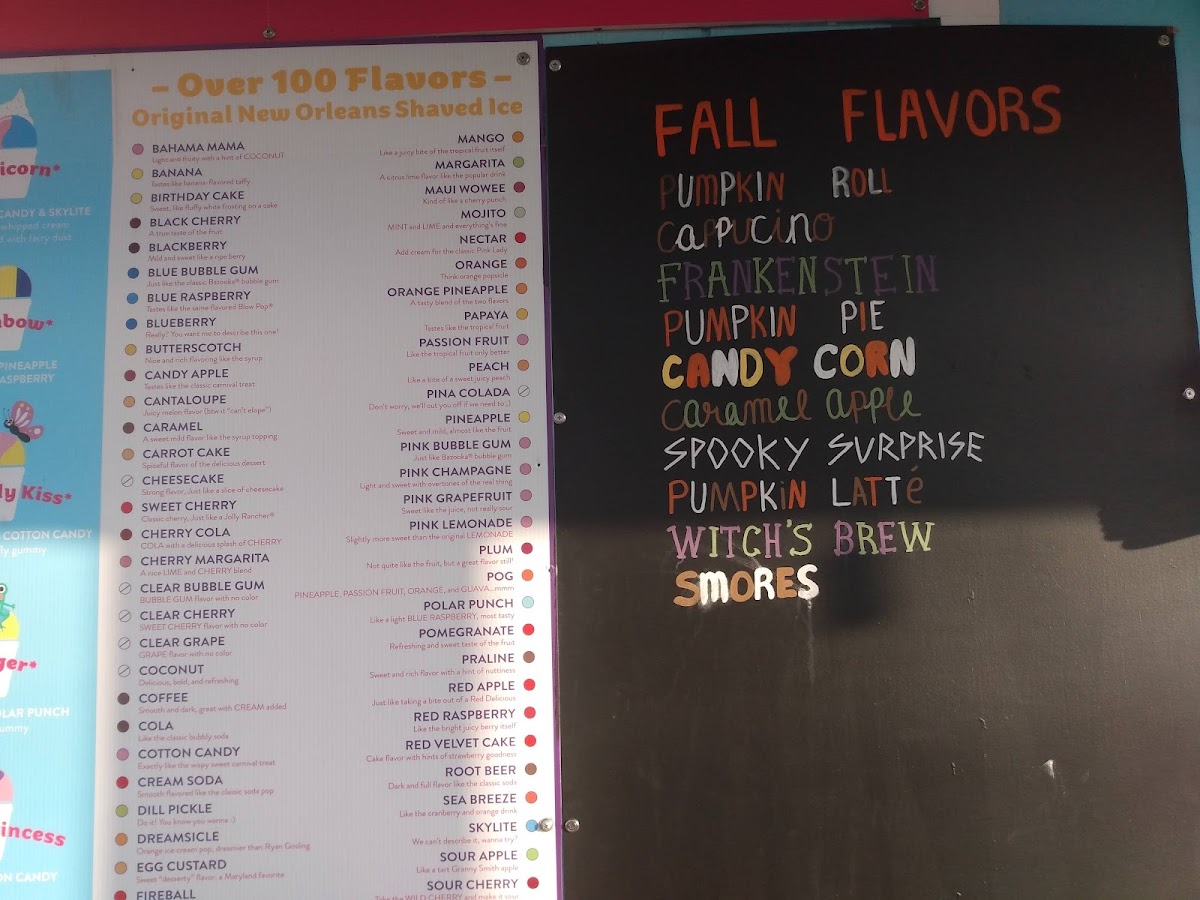 icorn*
CANDY & SKYLITE
whipped cream
d with fairy dust
bow*
PINEAPPLE
ASPBERRY
ly Kiss*
COTTON CANDY
fly gummy
ger*
OLAR PUNCH
ummy
incess
ON CANDY
– Over 100 Flavors –
Original New Orleans Shaved Ice
BAHAMA MAMA
Light and fruity with a hint of COCONUT
BANANA
Tastes like banana-flavored taffy
BIRTHDAY CAKE
Sweet, like fluffy white frosting on a cake
BLACK CHERRY
A true taste of the fruit
BLACKBERRY
Mild and sweet like a ripe berry
BLUE BUBBLE GUM
Just like the classic Bazooka® bubble gum
BLUE RASPBERRY
Tastes like the same flavored Blow Pop®
BLUEBERRY
Really? You want me to describe this one!
BUTTERSCOTCH
Nice and rich flavoring like the syrup
CANDY APPLE
Tastes like the classic carnival treat
CANTALOUPE
Juicy melon flavor (btw it "can't elope")
CARAMEL
A sweet mild flavor like the syrup topping
CARROT CAKE
Spiceful flavor of the delicious dessert
CHEESECAKE
Strong flavor, Just like a slice of cheesecake
SWEET CHERRY
Classic cherry, Just like a Jolly Rancher®
CHERRY COLA
COLA with a delicious splash of CHERRY
CHERRY MARGARITA
A nice LIME and CHERRY blend
CLEAR BUBBLE GUM
BUBBLE GUM flavor with no color
CLEAR CHERRY
SWEET CHERRY flavor with no color
CLEAR GRAPE
GRAPE flavor with no color
COCONUT
Delicious, bold, and refreshing
COFFEE
Smooth and dark, great with CREAM added
COLA
Like the classic bubbly soda
COTTON CANDY
Exactly like the wispy sweet carnival treat
CREAM SODA
Smooth flavored like the classic soda pop
DILL PICKLE
Do it! You know you wanna :)
DREAMSICLE
Orange ice cream pop, dreamier than Ryan Gosling
EGG CUSTARD
Sweet "desserty" flavor, a Maryland favorite
FIREBALL
MANGO
Like a juicy bite of the tropical fruit itself
MARGARITA
A citrus lime flavor like the popular drink
MAUI WOWEE
Kind of like a cherry punch
MOJITO
MINT and LIME and everything's fine
NECTAR
Add cream for the classic Pink Lady
ORANGE
Think orange popsicle
ORANGE PINEAPPLE
A tasty blend of the two flavors
PAPAYA
Tastes like the tropical fruit
PASSION FRUIT
Like the tropical fruit only better
PEACH
Like a bite of a sweet juicy peach
PINA COLADA
Don't worry, we'll cut you off if we need to ;)
PINEAPPLE
Sweet and mild, almost like the fruit
PINK BUBBLE GUM
Just like Bazooka® bubble gum
PINK CHAMPAGNE
Light and sweet with overtones of the real thing
PINK GRAPEFRUIT
Sweet like the juice, not really sour
PINK LEMONADE
Slightly more sweet than the original LEMONADE
PLUM
Not quite like the fruit, but a great flavor still!
POG
PINEAPPLE, PASSION FRUIT, ORANGE, and GUAVA...mmm
POLAR PUNCH
Like a light BLUE RASPBERRY, most tasty
POMEGRANATE
Refreshing and sweet taste of the fruit
PRALINE
Sweet and rich flavor with a hint of nuttiness
RED APPLE
Just like taking a bite out of a Red Delicious
RED RASPBERRY
Like the bright juicy berry itself
RED VELVET CAKE
Cake flavor with hints of strawberry goodness
ROOT BEER
Dark and full flavor like the classic soda
SEA BREEZE
Like the cranberry and orange drink
SKYLITE
We can't describe it, wanna try?
SOUR APPLE
Like a tart Granny Smith apple
SOUR CHERRY
Take the WILD CHERRY and make it sour
FALL FLAVORS
PUMPKIN ROLL
Cappucino
FRANKENSTEIN
PUMPKIN PIE
CANDY CORN
caramel apple
SPOOKY SURPRISE
PUMPKiN LATTé
WITCH'S BREW
SMORES